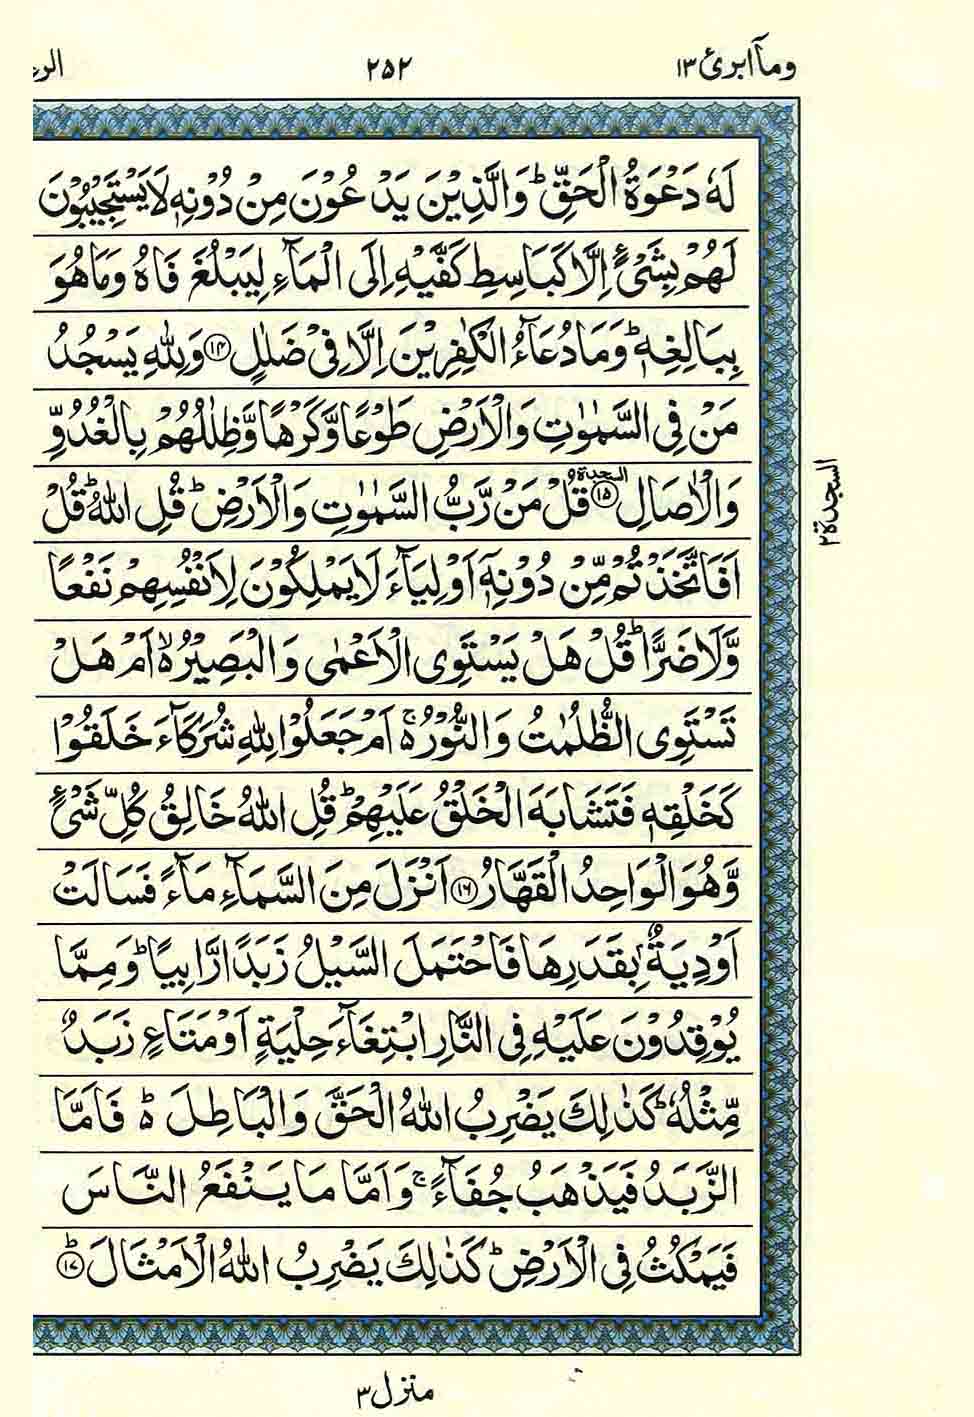 ومآابرئ ١٣ ٢٥٢ الرع
لَهٗ دَعْوَةُ الْحَقِّ ؕ وَالَّذِيْنَ يَدْعُوْنَ مِنْ دُوْنِهٖ لَا يَسْتَجِيْبُوْنَ
لَهُمْ بِشَىْءٍ اِلَّا كَبَاسِطِ كَفَّيْهِ اِلَى الْمَآءِ لِيَبْلُغَ فَاهُ وَمَا هُوَ
بِبَالِغِهٖ ؕ وَمَا دُعَآءُ الْكٰفِرِيْنَ اِلَّا فِىْ ضَلٰلٍ ۝١٤ وَلِلّٰهِ يَسْجُدُ
مَنْ فِى السَّمٰوٰتِ وَالْاَرْضِ طَوْعًا وَّكَرْهًا وَّظِلٰلُهُمْ بِالْغُدُوِّ
وَالْاٰصَالِ ۝١٥ السجدة قُلْ مَنْ رَّبُّ السَّمٰوٰتِ وَالْاَرْضِ ؕ قُلِ اللّٰهُ ؕ قُلْ
السجدة ٢
اَفَاتَّخَذْتُمْ مِّنْ دُوْنِهٖۤ اَوْلِيَآءَ لَا يَمْلِكُوْنَ لِاَنْفُسِهِمْ نَفْعًا
وَّلَا ضَرًّا ؕ قُلْ هَلْ يَسْتَوِى الْاَعْمٰى وَالْبَصِيْرُ ۙ۬ اَمْ هَلْ
تَسْتَوِى الظُّلُمٰتُ وَالنُّوْرُ ۚ۬ اَمْ جَعَلُوْا لِلّٰهِ شُرَكَآءَ خَلَقُوْا
كَخَلْقِهٖ فَتَشَابَهَ الْخَلْقُ عَلَيْهِمْ ؕ قُلِ اللّٰهُ خَالِقُ كُلِّ شَىْءٍ
وَّهُوَ الْوَاحِدُ الْقَهَّارُ ۝١٦ اَنْزَلَ مِنَ السَّمَآءِ مَآءً فَسَالَتْ
اَوْدِيَةٌۢ بِقَدَرِهَا فَاحْتَمَلَ السَّيْلُ زَبَدًا رَّابِيًا ؕ وَمِمَّا
يُوْقِدُوْنَ عَلَيْهِ فِى النَّارِ ابْتِغَآءَ حِلْيَةٍ اَوْ مَتَاعٍ زَبَدٌ
مِّثْلُهٗ ؕ كَذٰلِكَ يَضْرِبُ اللّٰهُ الْحَقَّ وَالْبَاطِلَ ۬ؕ فَاَمَّا
الزَّبَدُ فَيَذْهَبُ جُفَآءً ۚ وَاَمَّا مَا يَنْفَعُ النَّاسَ
فَيَمْكُثُ فِى الْاَرْضِ ؕ كَذٰلِكَ يَضْرِبُ اللّٰهُ الْاَمْثَالَ ۝١٧ؕ
منزل ٣